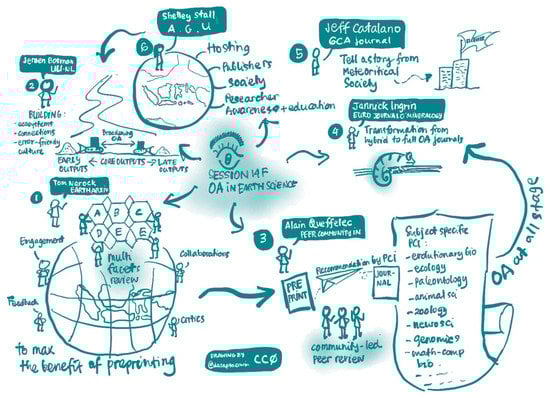 SESSION 14F
OA IN EARTH SCIENCE
1
Tom Narock
EARTHARXIV
A B C
D E E
multi
facets
review
Engagement
Collaborations
Feedback
Critics
to max
the benefit of preprinting
2
Jeroen Bosman
UU-NL
BUILDING:
- acceptance
- connections
- error-friendly
culture
Broadening
OA
EARLY
OUTPUTS
CORE OUTPUTS
LATE
OUTPUTS
3
Alain Queffelec
PEER COMMUNITY IN
PRE
PRINT
Recommendation by PCI
JOUR
NAL
community-led
peer review
Subject specific
PCI:
- evolutionary bio
- ecology
- Paleontology
- animal sci
- zoology
- neurosci
- genomics
- math-comp
bio
OA at all stage
4
Jannick Ingrin
EURO JOURNAL O MINERALOGY
Transformation from
hybrid to full OA journals
5
Jeff Catalano
GCA Journal
Tell a story from
Meteoritical
Society
6
Shelley Stall
A.G.U
Hosting
Publishers
Society
Researcher
Awareness + education
DRAWING BY
CC0